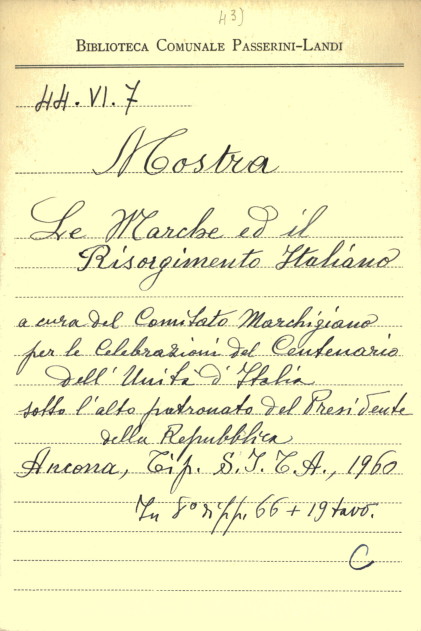 43)
BIBLIOTECA COMUNALE PASSERINI-LANDI
44.VI.7
Mostra
Le Marche ed il
Risorgimento Italiano
a cura del Comitato Marchigiano
per le Celebrazioni del Centenario
dell'Unità d'Italia
sotto l'alto patronato del Presidente
della Repubblica
Ancona, Tip. S.I.T.A., 1960
In 8° di pp. 66 + 19 tavo.
C